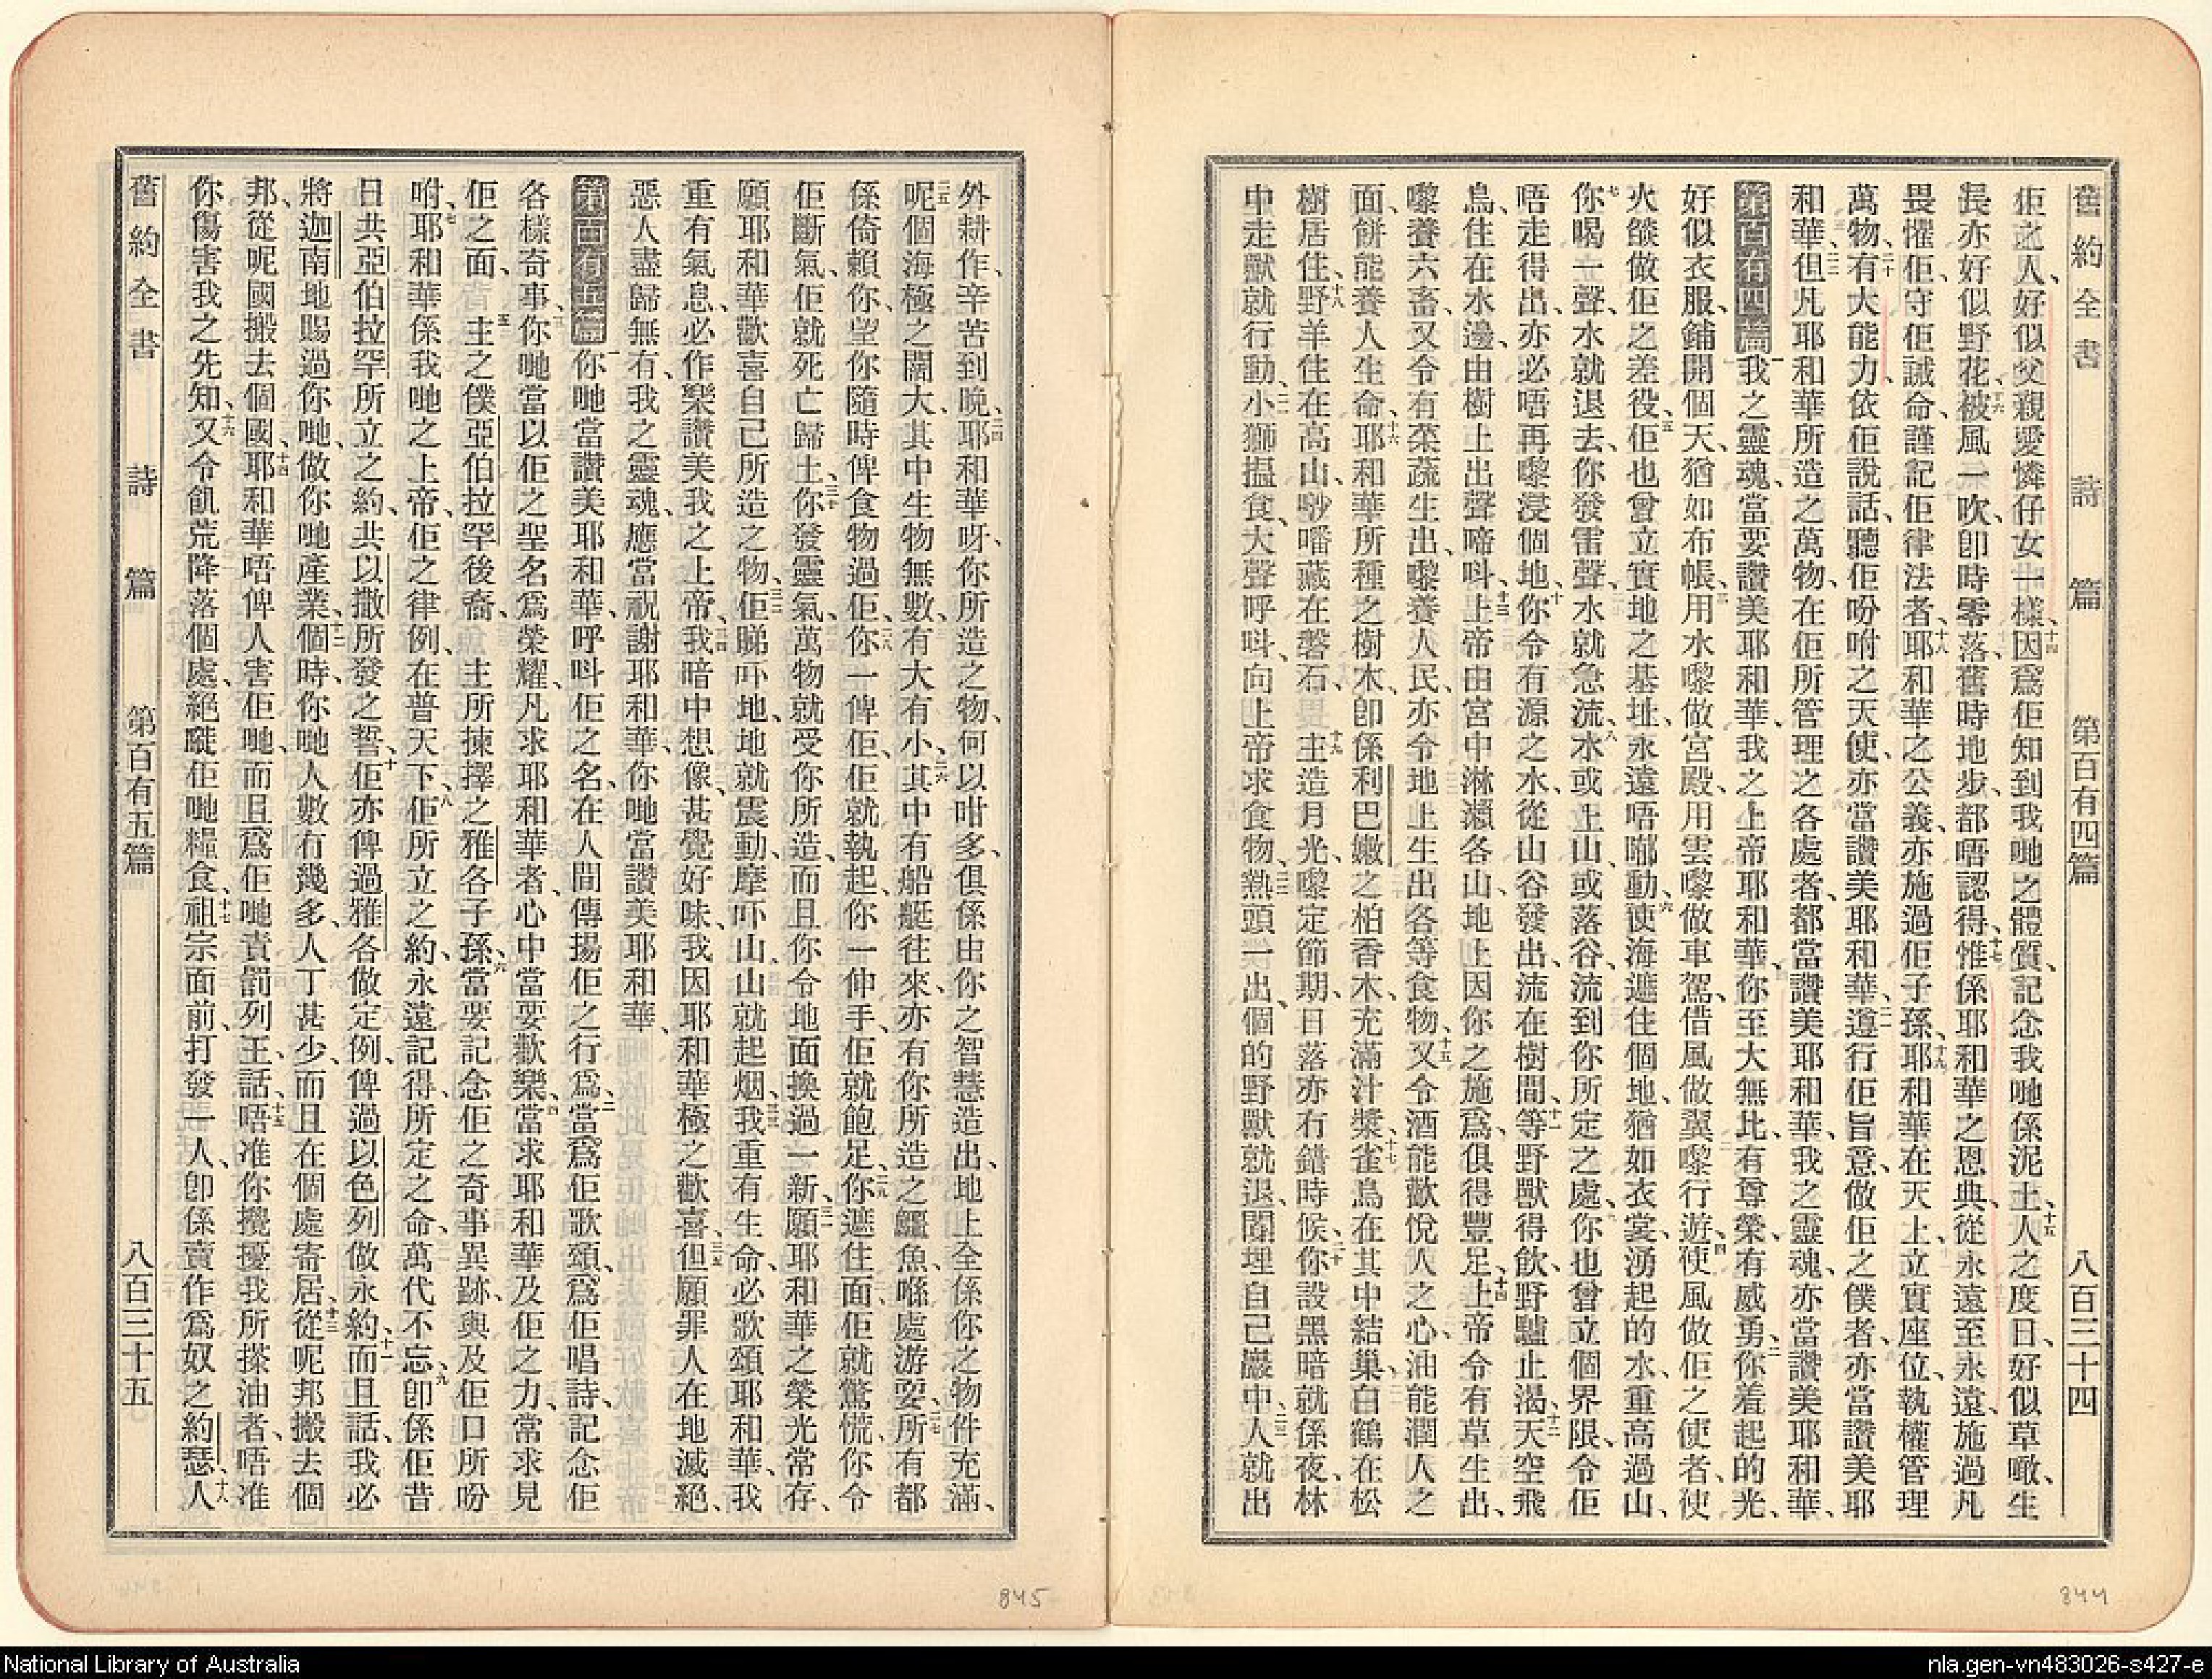 舊約全書 詩篇 第百有四篇 八百三十四
佢之人、好似父親愛憐仔女一樣、十四因爲佢知到我哋之體質、記念我哋係泥土、十五人之度日、好似草噉、生
長亦好似野花、十六被風一吹、卽時零落、舊時地步、都唔認得、十七惟係耶和華之恩典、從永遠至永遠、施過凡
畏懼佢、守佢誡命、謹記佢律法者、十八耶和華之公義、亦施過佢子孫、十九耶和華在天上立實座位、執權管理
萬物、二十有大能力、依佢說話、聽佢吩咐之天使、亦當讚美耶和華、二一遵行佢旨意、做佢之僕者、亦當讚美耶
和華、二二但凡耶和華所造之萬物、在佢所管理之各處者、都當讚美耶和華、我之靈魂、亦當讚美耶和華、
第百有四篇 一我之靈魂、當要讚美耶和華、我之上帝耶和華、你至大無比、有尊榮、有威勇、二你着起的光、
好似衣服、鋪開個天、猶如布帳、三用水嚟做宮殿、用雲嚟做車駕、借風做翼嚟行遊、四使風做佢之使者、使
火燄做佢之差役、五佢也曾立實地之基址、永遠唔啷動、六使海遮住個地、猶如衣裳、湧起的水、重高過山、
七你喝一聲、水就退去、你發雷聲、水就急流、八水或上山、或落谷、流到你所定之處、九你也曾立個界限、令佢
唔走得出、亦必唔再嚟浸個地、十你令有源之水、從山谷發出、流在樹間、十一等野獸得飲、野驢止渴、十二天空飛
鳥、住在水邊、由樹上出聲啼呌、十三上帝由宮中淋灑各山、地上因你之施爲、俱得豐足、十四上帝令有草生出、
嚟養六畜、又令有菜蔬生出、嚟養人民、亦令地上生出各等食物、十五又令酒能歡悅人之心、油能潤人之
面、餅能養人生命、十六耶和華所種之樹木、卽係利巴嫩之柏香木、充滿汁漿、十七雀鳥在其中結巢、白鶴在松
樹居住、十八野羊住在高山、𠺘噃藏在磐石、十九主造月光、嚟定節期、日落亦冇錯時候、二十你設黑暗、就係夜、林
中走獸就行動、二一小獅搵食、大聲呼呌、向上帝求食物、二二熱頭一出、個的野獸就退、閪埋自己巖中、二三人就出
外耕作、辛苦到晚、二四耶和華呀、你所造之物、何以咁多、俱係由你之智慧造出、地上全係你之物件充滿、
二五呢個海極之闊大、其中生物無數、有大有小、二六其中有船艇往來、亦有你所造之鱷魚、喺處游耍、二七所有都
係倚賴你、望你隨時俾食物過佢、二八你一俾佢、佢就執起、你一伸手、佢就飽足、二九你遮住面、佢就驚慌、你令
佢斷氣、佢就死亡歸土、三十你發靈氣、萬物就受你所造、而且你令地面換過一新、三一願耶和華之榮光常存、
願耶和華歡喜自己所造之物、三二佢睇吓地、地就震動、摩吓山、山就起烟、三三我重有生命、必歌頌耶和華、我
重有氣息、必作樂讚美我之上帝、三四我暗中想像、甚覺好味、我因耶和華極之歡喜、三五但願罪人在地滅絕、
惡人盡歸無有、我之靈魂、應當祝謝耶和華、你哋當讚美耶和華、
第百有五篇 一你哋當讚美耶和華、呼呌佢之名、在人間傳揚佢之行爲、二當爲佢歌頌、爲佢唱詩、記念佢
各樣奇事、三你哋當以佢之聖名爲榮耀、凡求耶和華者、心中當要歡樂、四當求耶和華、及佢之力、常求見
佢之面、五主之僕亞伯拉罕後裔、主所揀擇之雅各子孫、六當要記念佢之奇事異跡、與及佢口所吩
咐、七耶和華係我哋之上帝、佢之律例、在普天下、八佢所立之約、永遠記得、所定之命、萬代不忘、九卽係佢昔
日共亞伯拉罕所立之約、共以撒所發之誓、十佢亦俾過雅各做定例、俾過以色列做永約、十一而且話、我必
將迦南地賜過你哋、做你哋產業、十二個時、你哋人數冇幾多、人丁甚少、而且在個處寄居、十三從呢邦搬去個
邦、從呢國搬去個國、十四耶和華唔俾人害佢哋、而且爲佢哋責罰列王、話、十五唔准你攪擾我所搽油者、唔准
你傷害我之先知、十六又令飢荒降落個處、絕曬佢哋糧食、十七祖宗面前、打發一人、卽係賣作爲奴之約瑟、十八人
舊約全書 詩篇 第百有五篇 八百三十五
844
845
National Library of Australia
nla.gen-vn483026-s427-e